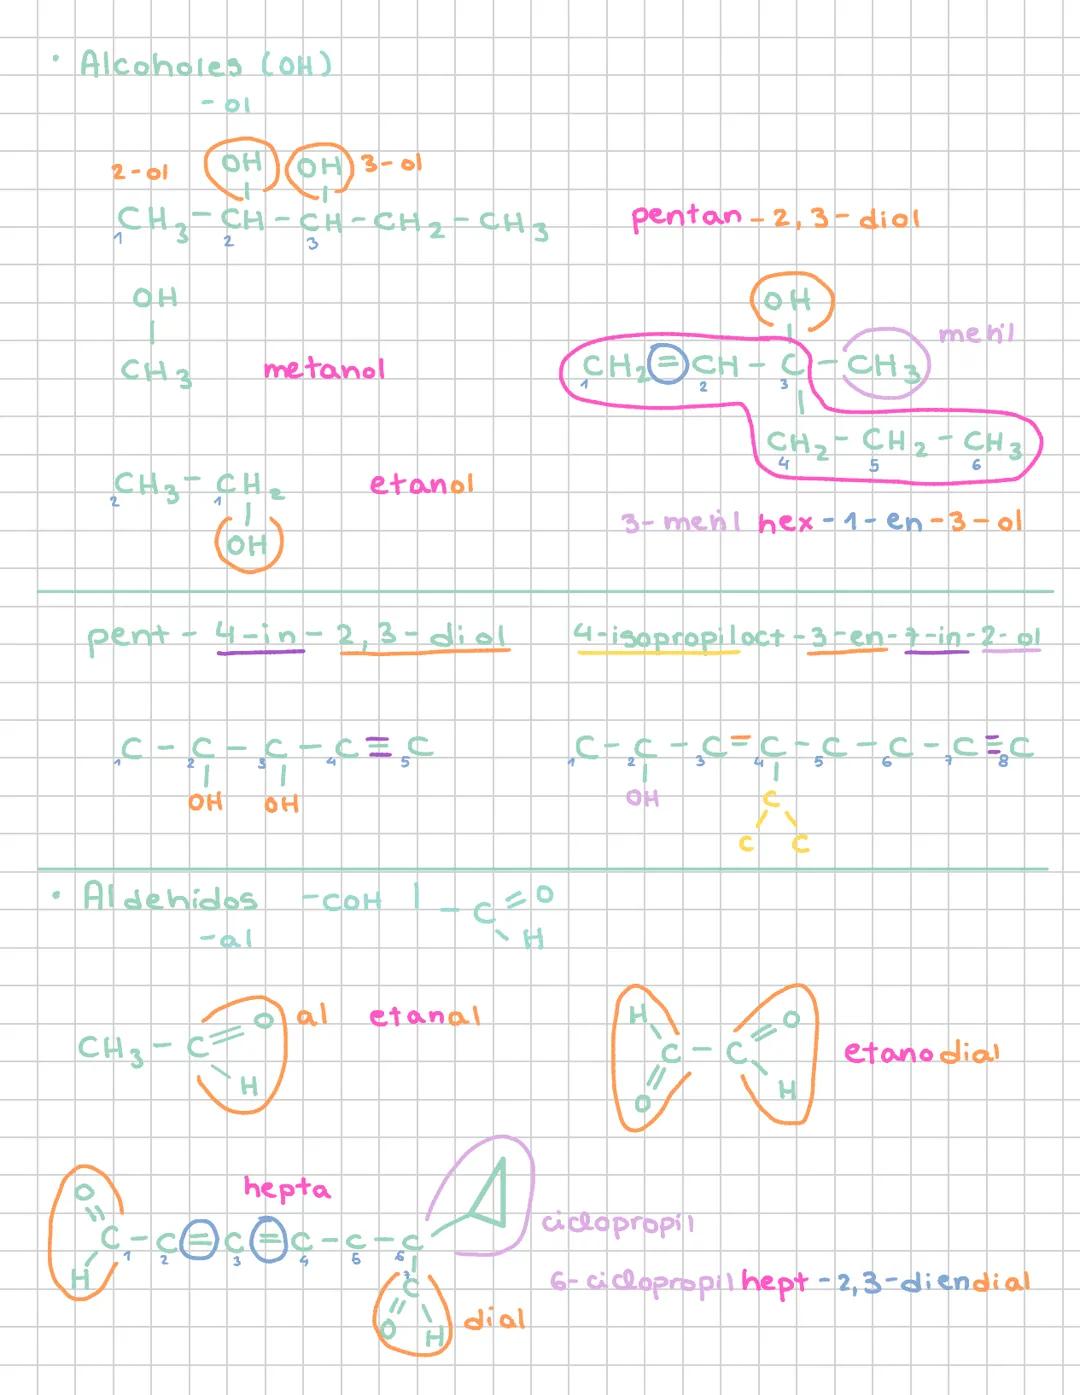 • Alcoholes (OH)
-ol
2-ol OH OH 3-ol
CH3-CH-CH-CH2-CH3 pentan-2,3-diol
1 2 3
OH
CH3 metanol
OH
CH2=CH-C-CH3 metil
1 2 3
CH2-CH2-CH3
4 5 6
CH3-CH2 etanol
2 1
OH
3-metil hex-1-en-3-ol
pent-4-in-2,3-diol 4-isopropiloct-3-en-7-in-2-ol
C-C-C-C≡C C-C-C=C-C-C-C≡C
1 2 3 4 5 1 2 3 4 5 6 7 8
OH OH OH C
C C
• Aldehidos -COH | -C=O
-al H
CH3-C=O al etanal
H
H O
C-C etanodial
O H
hepta
O
C-C=C=C-C-C-C ciclopropil
1 2 3 4 5 6
H
7
C
O H dial
6-ciclopropil hept-2,3-diendial